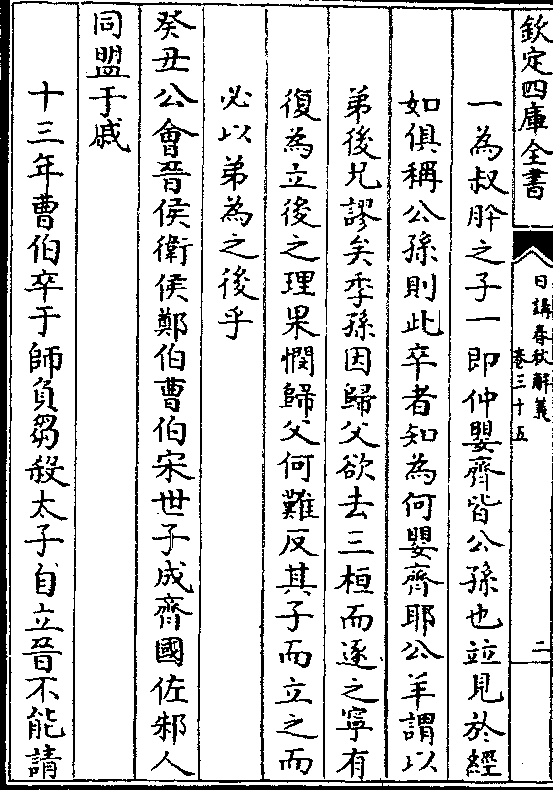 欽定四庫全書
日講春秋解義
卷三十五
二
一為叔肸之子一即仲嬰齊皆公孫也並見於經
如俱稱公孫則此卒者知為何嬰齊耶公羊謂以
弟後兄謬矣季孫因歸父欲去三桓而逐之寧有
復為立後之理果憫歸父何難反其子而立之而
必以弟為之後乎
癸丑公會晉侯衛侯鄭伯曹伯宋世子成齊國佐邾人
同盟于戚
十三年曹伯卒于師負芻殺太子自立晉不能請